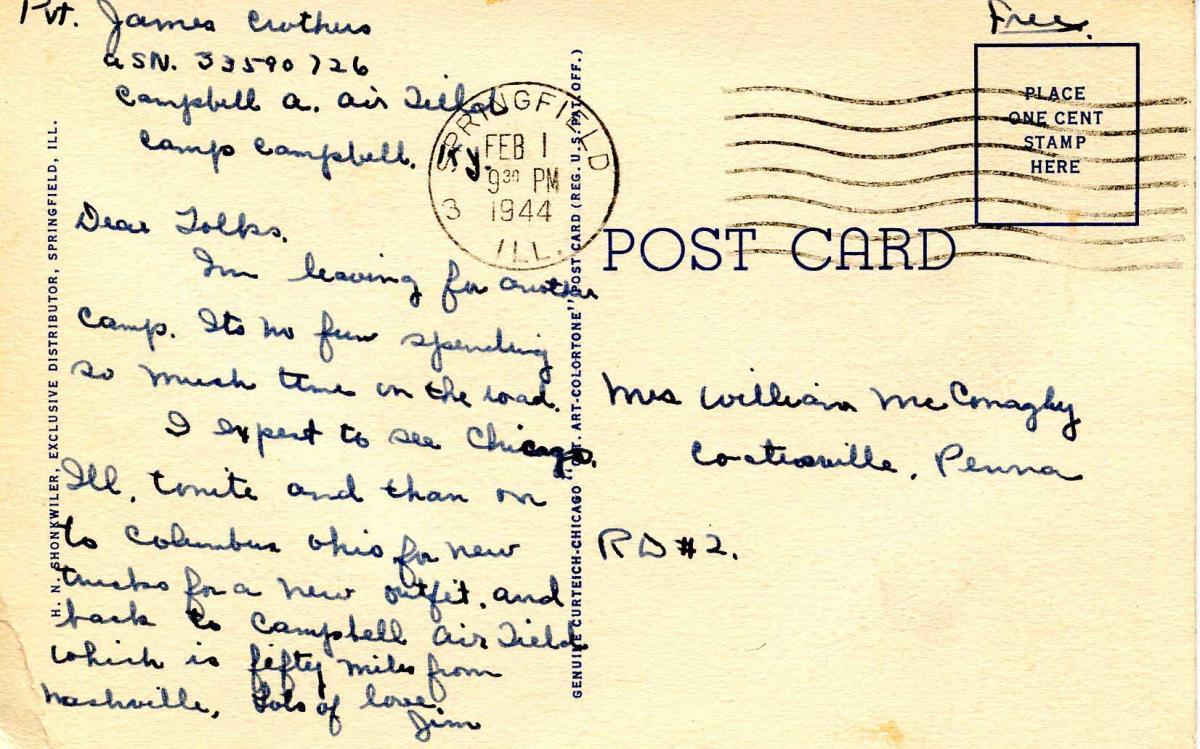 Pvt. James Crothers
ASN. 33590726
Campbell A. Air Field
Camp Campbell, Ky.
Dear Folks.
Im leaving for another
camp. Its no fun spending
so mush time on the road.
I expect to see Chicago,
Ill, tonite and than on
to Columbus Ohio for new
trucks for a new outfit. and
back to Campbell Air Field
which is fifty miles from
Nashville, Lots of love,
Jim
SPRINGFIELD
FEB 1
9 30 PM
3 1944
ILL.
Free.
PLACE
ONE CENT
STAMP
HERE
POST CARD
Mrs William McConaghy
Coatesville, Penna
RD #2.
H. N. SHONKWILER, EXCLUSIVE DISTRIBUTOR, SPRINGFIELD, ILL.
GENUINE CURTEICH-CHICAGO "C.T. ART-COLORTONE" POST CARD (REG. U.S. PAT. OFF.)